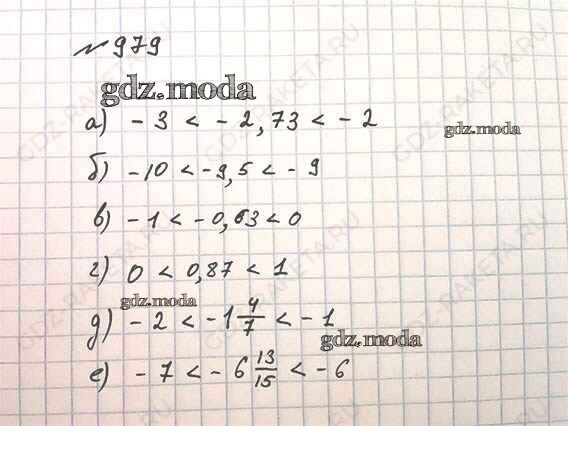 №979
gdz.moda
а) -3 < -2,73 < -2
gdz.moda
б) -10 < -9,5 < -9
в) -1 < -0,63 < 0
г) 0 < 0,87 < 1
gdz.moda
д) -2 < -1 4/7 < -1
gdz.moda
е) -7 < -6 13/15 < -6
GDZ-RAKETA.RU
GDZ-RAKETA.RU
GDZ-RAKETA.RU
GDZ-RAKETA.RU
GDZ-RAKETA.RU